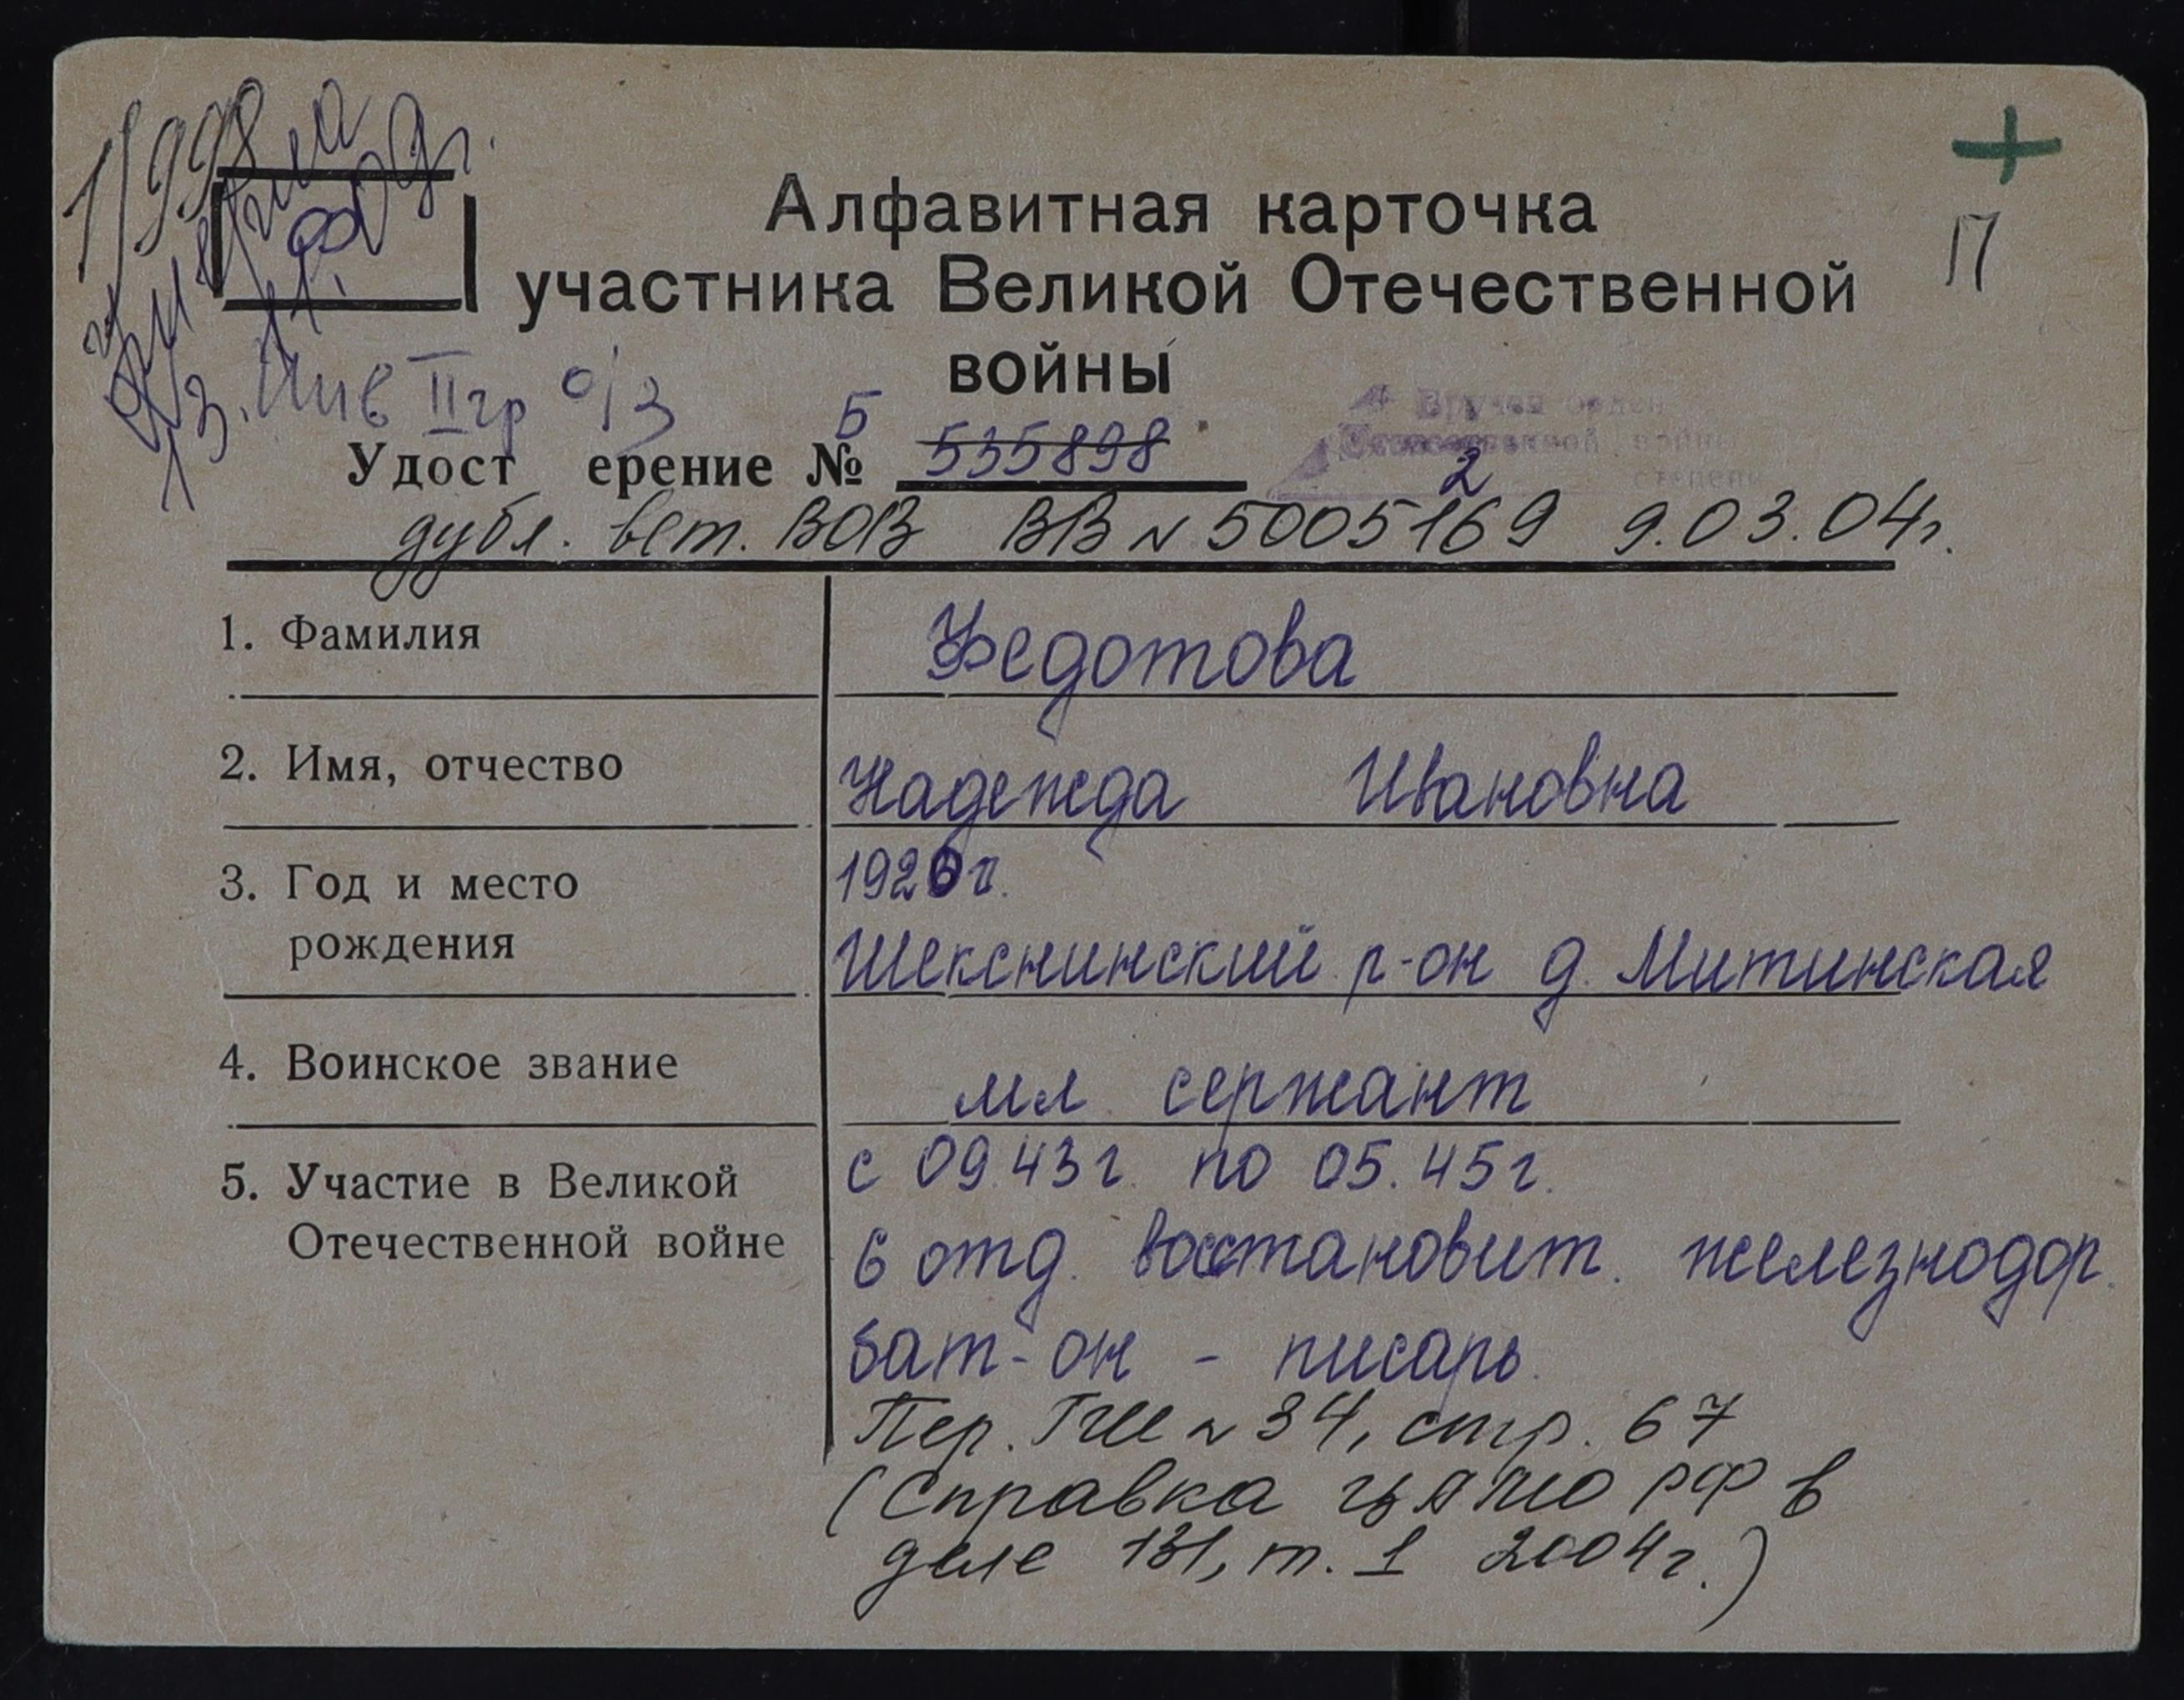 1/998
умерла
13.11.2009г.
+
Алфавитная карточка
П
участника Великой Отечественной
войны
Инв II гр о/з
Вручен орден
Отечественной войны
2 степени
Удост ерение № Б 535898
дубл. вет. ВОВ ВВ № 5005169 9.03.04г.
1. Фамилия Федотова
2. Имя, отчество Надежда Ивановна
3. Год и место 1920г.
рождения Шекснинский р-он д. Митинская
4. Воинское звание мл сержант
5. Участие в Великой с 09.43г. по 05.45г.
Отечественной войне 6 отд. восстановит. железнодор.
бат-он - писарь.
Пер. ГШ № 34, стр. 67
(Справка ЦАМО РФ в
деле 131, т. 1 2004г.)